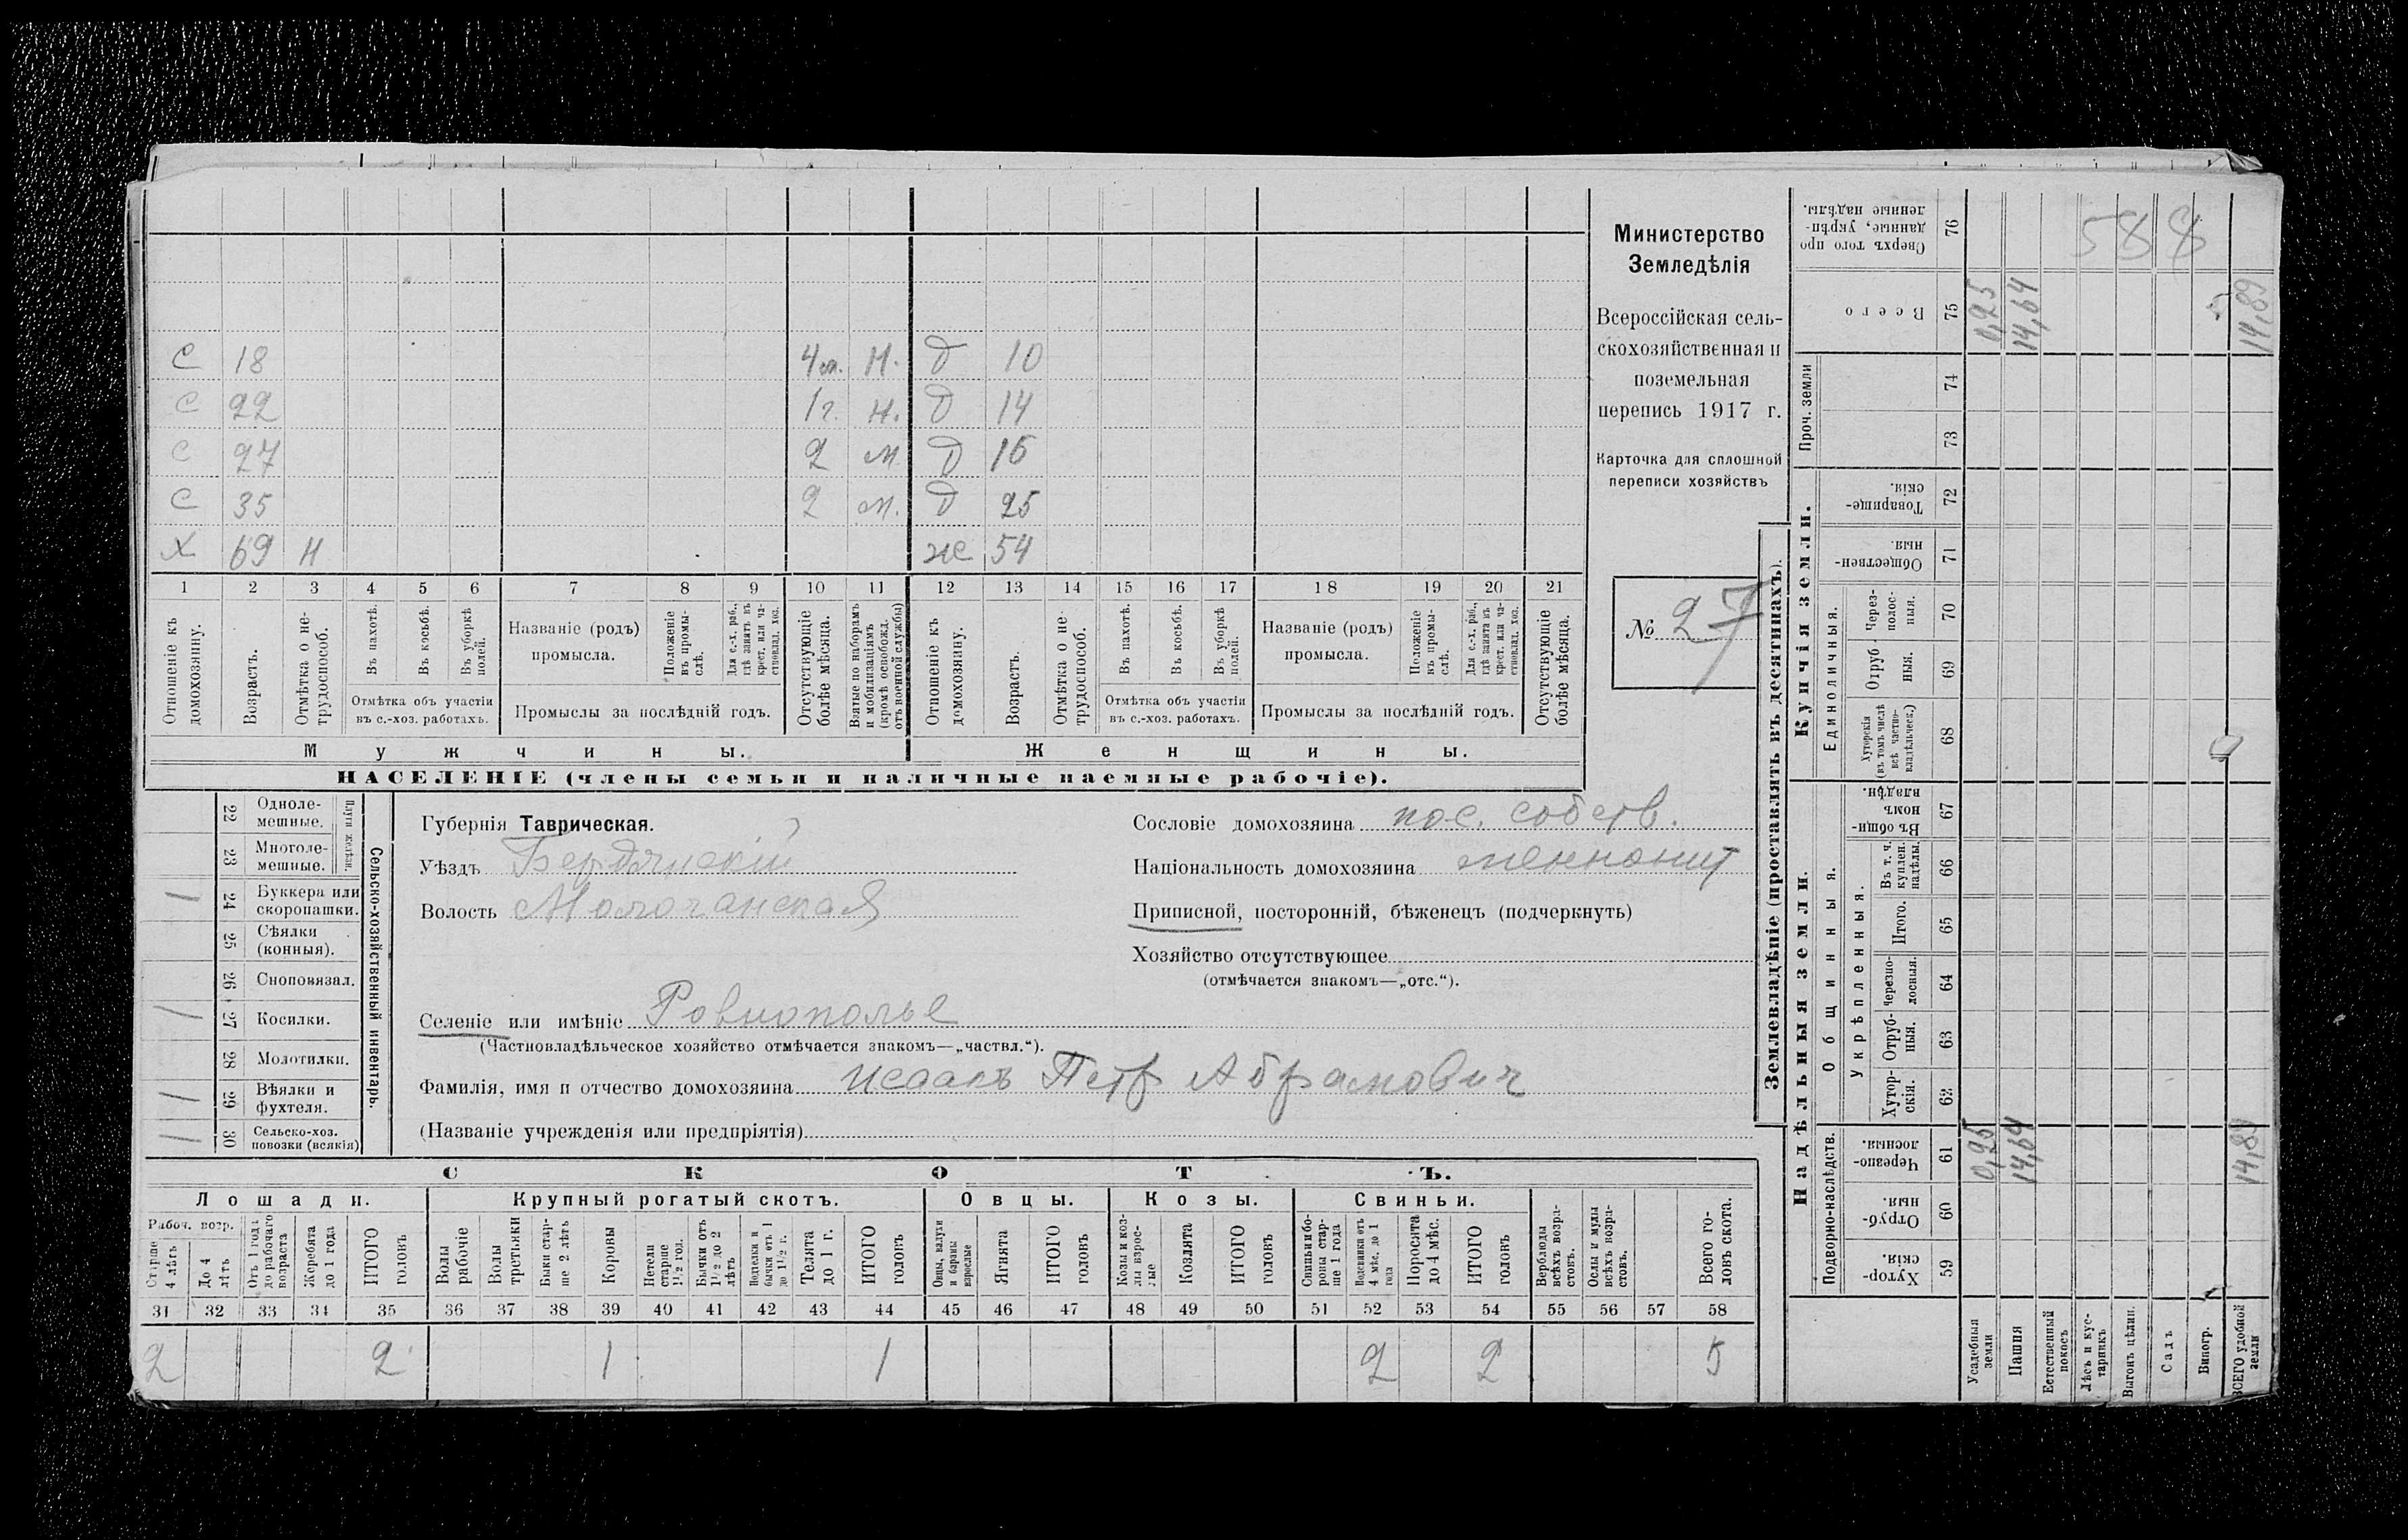 Министерство
Земледѣлія
Всероссійская сель-
скохозяйственная и
поземельная
перепись 1917 г.
Карточка для сплошной
переписи хозяйствъ
№ 27
С 18 4 м. Н. Д 10
С 22 1 г. Н. Д 14
С 27 2 М Д 16
С 35 2 М. Д 25
Х 69 Н ЖЕ 54
1 2 3 4 5 6 7 8 9 10 11 12 13 14 15 16 17 18 19 20 21
Отношеніе къ домохозяину.
Возрастъ.
Отмѣтка о не-трудоспособ.
Въ пахотѣ.
Въ косьбѣ.
Въ уборкѣ полей.
Отмѣтка объ участіи
въ с.-хоз. работахъ.
Названіе (родъ)
промысла.
Положеніе въ промы-слѣ.
Для с.-х. раб., гдѣ занятъ въ крест. или ча-стновлад. хоз.
Промыслы за послѣдній годъ.
Отсутствующіе болѣе мѣсяца.
Взятые по наборамъ и мобилизаціямъ (кромѣ освобожд. отъ военной службы)
Отношеніе къ домохозяину.
Возрастъ.
Отмѣтка о не-трудоспособ.
Въ пахотѣ.
Въ косьбѣ.
Въ уборкѣ полей.
Отмѣтка объ участіи
въ с.-хоз. работахъ.
Названіе (родъ)
промысла.
Положеніе въ промы-слѣ.
Для с.-х. раб., гдѣ занята въ крест. или ча-стновлад. хоз.
Промыслы за послѣдній годъ.
Отсутствующіе болѣе мѣсяца.
Мужчины. Женщины.
НАСЕЛЕНІЕ (члены семьи и наличные наемные рабочіе).
22 Одноле-мешные.
23 Многоле-мешные.
1 24 Буккера или скоропашки.
25 Сѣялки (конныя).
26 Сноповязал.
1 27 Косилки.
28 Молотилки.
1 29 Вѣялки и фухтеля.
1 30 Сельско-хоз. повозки (всякія)
Сельско-хозяйственный инвентарь.
Губернія Таврическая.
Уѣздъ Бердянскій
Волость Молочанская
Селеніе или имѣніе Ровнополье
(Частновладѣльческое хозяйство отмѣчается знакомъ—„частвл.“).
Фамилія, имя и отчество домохозяина Исаакъ Петр Абрамович
(Названіе учрежденія или предпріятія)
Сословіе домохозяина пос. собств.
Національность домохозяина меннонит
Приписной, посторонній, бѣженецъ (подчеркнуть)
Хозяйство отсутствующее
(отмѣчается знакомъ—„отс.“).
СКОТЪ.
Лошади. Крупный рогатый скотъ. Овцы. Козы. Свиньи.
Рабоч. возр.
Старше 4 лѣтъ
До 4 лѣтъ
Отъ 1 года до рабочаго возраста
Жеребята до 1 года
ИТОГО головъ
Волы рабочіе
Волы третьяки
Быки стар-ше 2 лѣтъ
Коровы
Нетели старше 1½ год.
Бычки отъ 1½ до 2 лѣтъ
Нетелки и бычки отъ 1 до 1½ г.
Телята до 1 г.
ИТОГО головъ
Овцы, валухи и бараны взрослые
Ягнята
ИТОГО головъ
Козы и коз-лы взрос-лые
Козлята
ИТОГО головъ
Свиньи и бо-ровы стар-ше 1 года
Подсвинки отъ 4 мѣс. до 1 года
Поросята до 4 мѣс.
ИТОГО головъ
Верблюды всѣхъ возра-стовъ.
Ослы и мулы всѣхъ возра-стовъ.
Всего го-ловъ скота.
31 32 33 34 35 36 37 38 39 40 41 42 43 44 45 46 47 48 49 50 51 52 53 54 55 56 57 58
2 2 1 1 2 2 5
Землевладѣніе (проставлять въ десятинахъ).
Надѣльныя земли. Купчія земли.
Подворно-наслѣдств.
Общинныя.
Укрѣпленныя.
Единоличныя.
Проч. земли
59 Хутор-скія.
60 Отруб-ныя.
61 Черезпо-лосныя.
62 Хутор-скія.
63 Отруб-ныя.
64 Черезпо-лосныя.
65 Итого.
66 Въ т. ч. куплен. надѣлы.
67 Въ общи-номъ владѣн.
68 Хуторскія (въ томъ числѣ всѣ частно-владѣльческ.)
69 Отруб-ныя.
70 Через-полос-ныя.
71 Обществен-ныя.
72 Товарище-скія.
73
74
75 Всего
76 Сверхъ того про-данные, укрѣп-ленные надѣлы.
Усадебныя земли 0,25 0,25
Пашня 14,64 14,64
Естественный покосъ
Лѣсъ и кус-тарникъ
Выгонъ цѣлин.
Садъ
Виногр.
ВСЕГО удобной земли 14,89 14,89
588